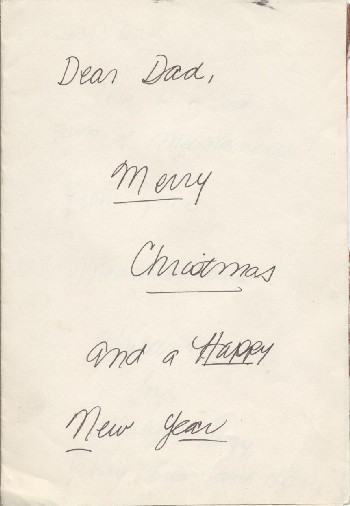 Dear Dad,
Merry
Christmas
and a Happy
New Year